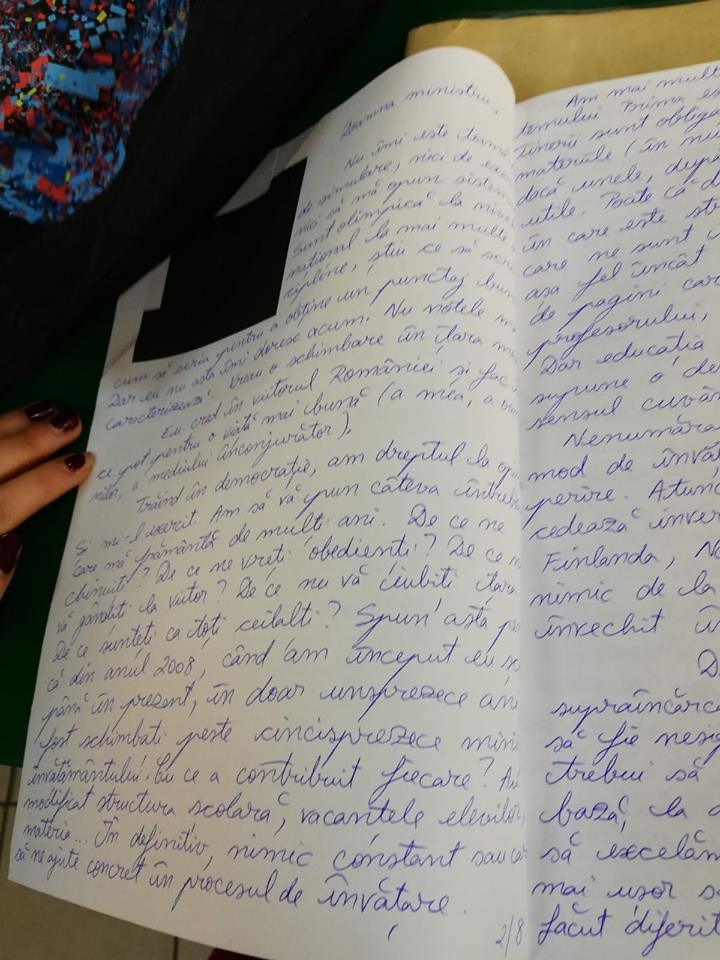 Doamna ministru,
Nu îmi este teamă
de simulare, nici de exa
nici să mă opun sistem
Sunt olimpică la nive
național la mai multe
cipline, știu ce să scri
cum să scriu pentru a obține un punctaj bun
Dar eu nu asta îmi doresc acum. Nu notele m
caracterizează. Vreau o schimbare în țara mea
Eu cred în viitorul României și fac
ce pot pentru o viață mai bună (a mea, a
nilor, a mediului înconjurător).
Trăind în democrație, am dreptul la opi
Și mi-l exercit. Am să vă pun câteva întreb
care mă frământă de mulți ani. De ce ne
chinuiți? De ce ne vreți obedienți? De ce n
vă gândiți la viitor? De ce nu vă iubiți țara
De ce sunteți ca toți ceilalți? Spun asta pe
că din anul 2008, când am început eu șc
până în prezent, în doar unsprezece ani
fost schimbați peste cincisprezece mini
învățământului. Cu ce a contribuit fiecare? Au
modificat structura școlară, vacanțele elevilor,
materia... În definitiv, nimic constant sau car
să ne ajute concret în procesul de învățare.
2/8
Am mai mult
temului Prima es
Tinerii sunt obliga
materiile (în nu
dacă unele, dup
utile. Poate că d
în care este str
care ne sunt
așa fel încât
de pagini car
profesorului,
Dar educația
supune o de
sensul cuvân
Nenumăra
mod de învăț
perire. Atunc
cedează inver
Finlanda, No
nimic de la
învechit în
D
supraîncărca
să fie nesig
trebui să
bază, la
să excelăm
mai ușor s
făcut diferit